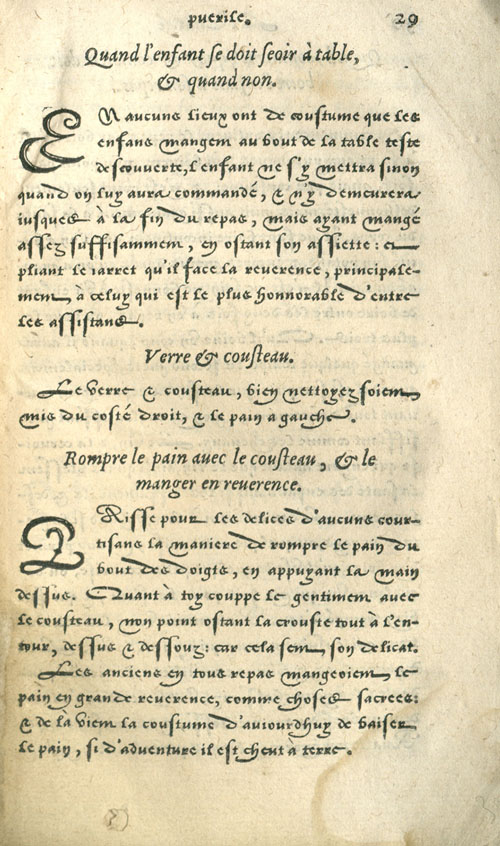 puerile. 29
Quand l'enfant se doit seoir à table,
& quand non.
EN aucuns lieux ont de coustume que les
enfans mangent au bout de la table teste
descouverte, l'enfant ne s'y mettra sinon
quand on luy aura commandé, & n'y demeurera
iusques à la fin du repas, mais ayant mangé
assez suffisamment, en ostant son assiette: et
pliant le iarret qu'il face la reverence, principale-
ment à celuy qui est le plus honnorable d'entre
les assistans.
Verre & cousteau.
Le verre & cousteau, bien nettoyez soient
mis du costé droit, & le pain a gauche.
Rompre le pain avec le cousteau, & le
manger en reverence.
Risse pour les delices d'aucuns cour-
tisans la maniere de rompre le pain du
bout des doigts, en appuyant la main
dessus. Quant à toy couppe le gentiment avec
le cousteau, non point ostant la crouste tout à l'en-
tour, dessus & dessouz: car cela sent son delicat.
Les anciens en tous repas mangeoient le
pain en grande reverence, comme choses sacrees:
& de la vient la coustume d'auiourdhuy de baiser
le pain, si d'adventure il est cheut à terre.